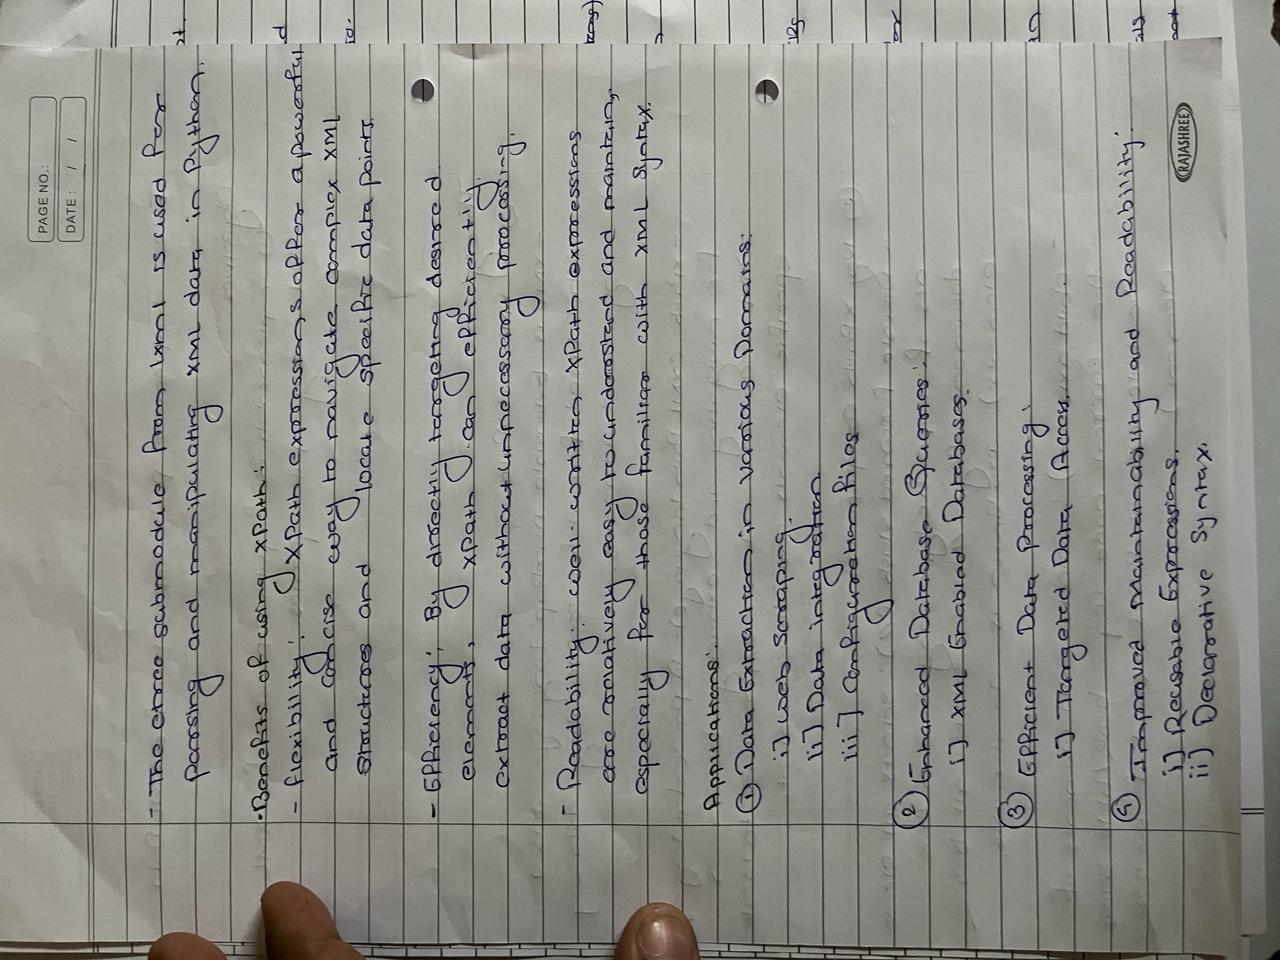 PAGE NO.:
DATE: / /
- The etree submodule from lxml is used for
parsing and manipulating XML data in Python.
•Benefits of using XPath:
- flexibility: XPath expressions offer a powerful
and concise way to navigate complex XML
structures and locate specific data points.
- Efficiency: By directly targeting desired
elements, XPath can efficiently
extract data without unnecessary processing.
- Readability: well-written XPath expressions
are relatively easy to understand and maintain,
especially for those familiar with XML syntax.
Applications:
① Data Extraction in various Domains:
i] web scraping
ii] Data integration
iii] Configuration files
② Enhanced Database Queries:
i] XML Enabled Databases.
③ Efficient Data Processing:
i] Targered Data Access.
④ Improved Maintainability and Readability:
i] Reusable Expressions.
ii] Declarative Syntax.
RAJASHREE